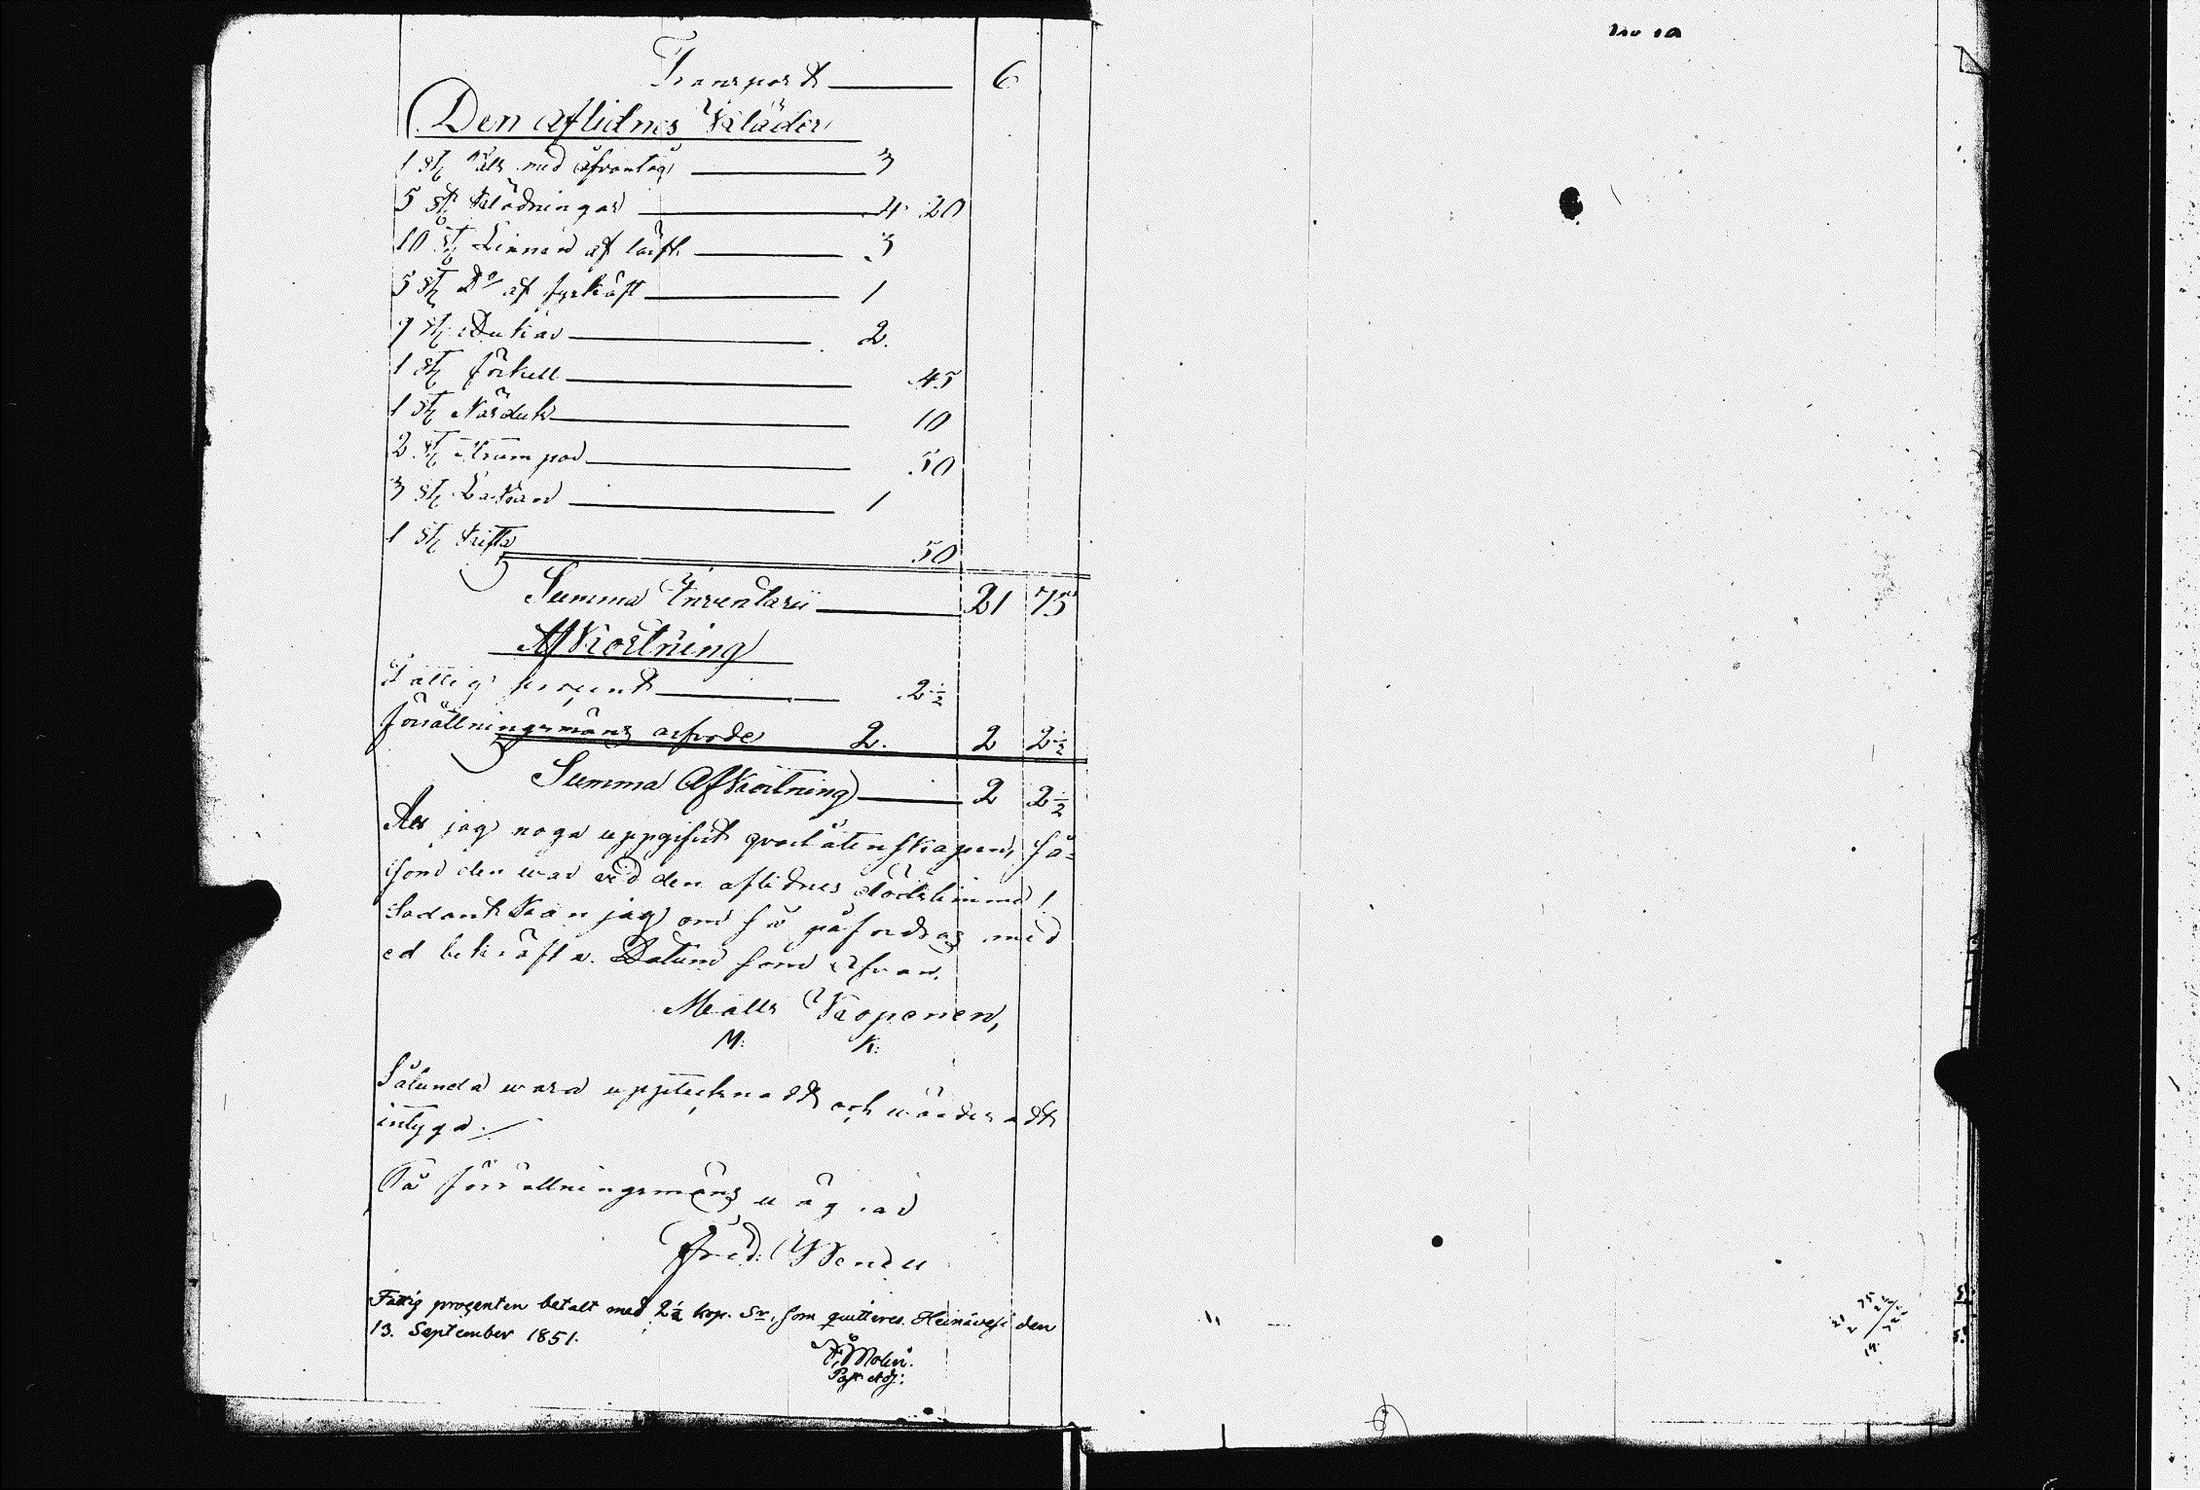 Transport 6
Den aflidnes Kläder
1 st Päls med öfvantög 3
5 st Klädningar 4 20
10 st Linnen af lärft 3
5 st Do af fyrskäft 1
9 st Dukar 2.
1 st förkell 45
1 st Näsduk 10
2 st Strumpor 50
3 st Lakan 1
1 st 50
Summa Inventarii 21 75
Afkortning
Fattig procent 2 1/2
förrättningsmäns arfvode 2. 2 2 1/2
Summa Afkortning 2 2 1/2
Att jag noga uppgifvit qvarlåtenskapen, så-
som den war vid den aflidnes dödstimma!
Sådant kan jag om så påfordras med
ed bekräfta. Datum som ofvan.
Matts Koponen,
M: K:
Sålunda wara upptecknadt och wärderadt
intyga.
På förrättningsmäns wägnar
Fred:
Fattig prozenten betalt med 2 1/2 kop. Sr, som quitteres. Heinävesi den
13. September 1851.
Molin.
Past. adj:
75
21
2
19